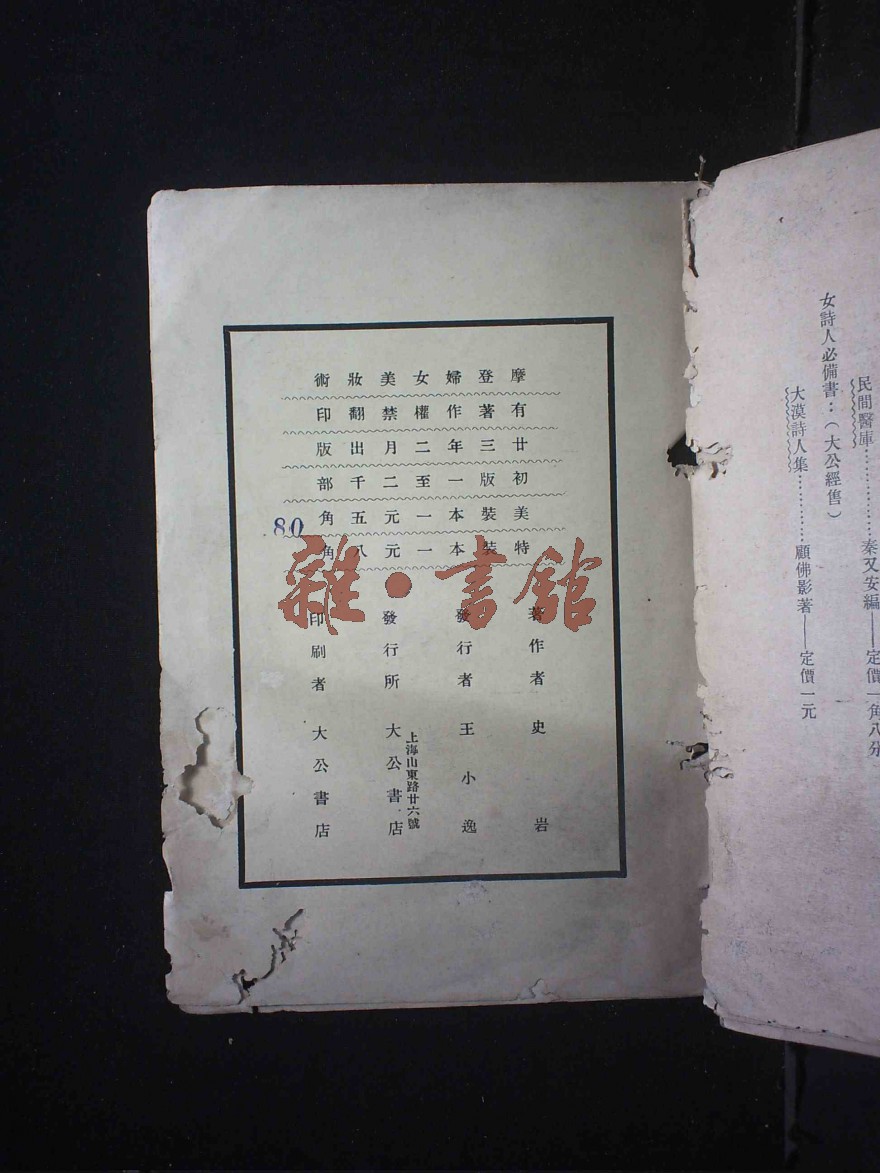 民間醫庫………………秦又安編——定價一角八分
女詩人必備書：（大公經售）
大漠詩人集…………顧佛影著——定價一元
摩登婦女美妝術
有著作權禁翻印
廿三年二月出版
初版一至二千部
美裝本一元五角
80
特裝本一元八角
雜·書館
著作者 史岩
發行者 王小逸
上海山東路廿六號
發行所 大公書店
印刷者 大公書店